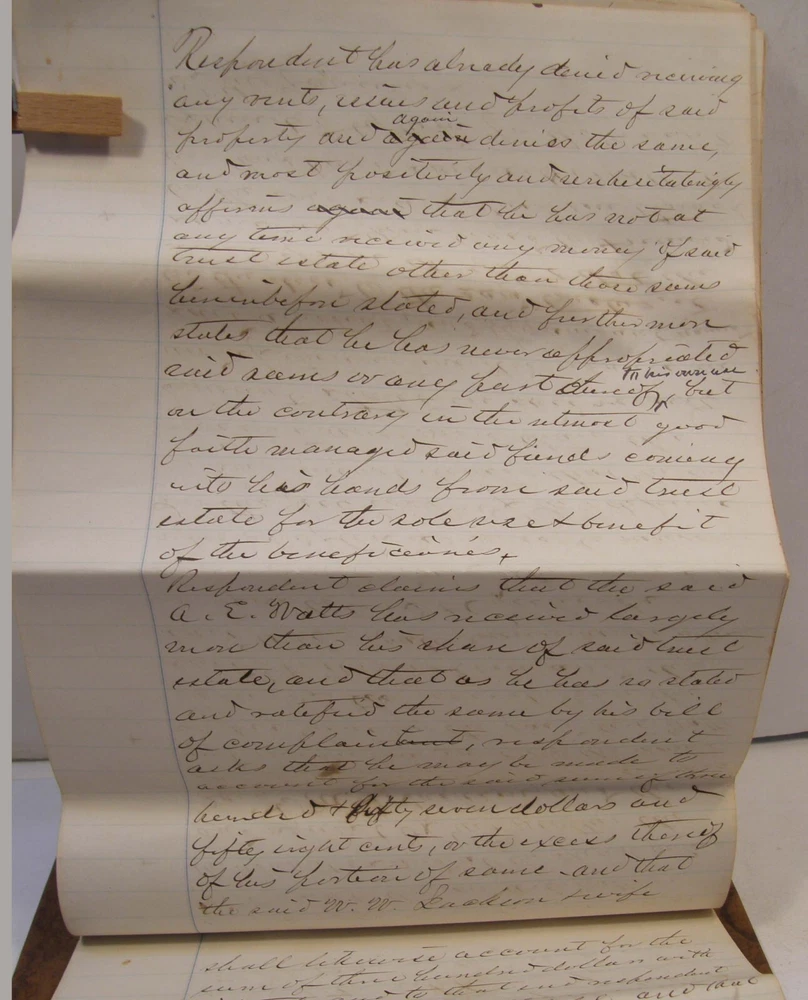 Respondent has already denied receiving
any rents, issues and profits of said
again
property and again denies the same,
and most positively and unhesitatingly
affirms again that he has not at
any time received any money of said
trust estate other than those sums
hereinbefore stated, and furthermore
states that he has never appropriated
to his own use
said sums or any part thereof, but
on the contrary in the utmost good
faith managed said funds coming
into his hands from said trust
estate for the sole use & benefit
of the beneficiaries.
Respondent claims that the said
A. E. Watts has received largely
more than his share of said trust
estate, and that as he has so stated
and ratified the same by his bill
of complaint, respondent
asks that he may be made to
account for the said sum of three
hundred & fifty seven dollars and
fifty eight cents, or the excess thereof
of his portion of same and that
the said W. W. Jackson & wife
shall likewise account for the
sum of three hundred dollars with
and to that end respondent
and that